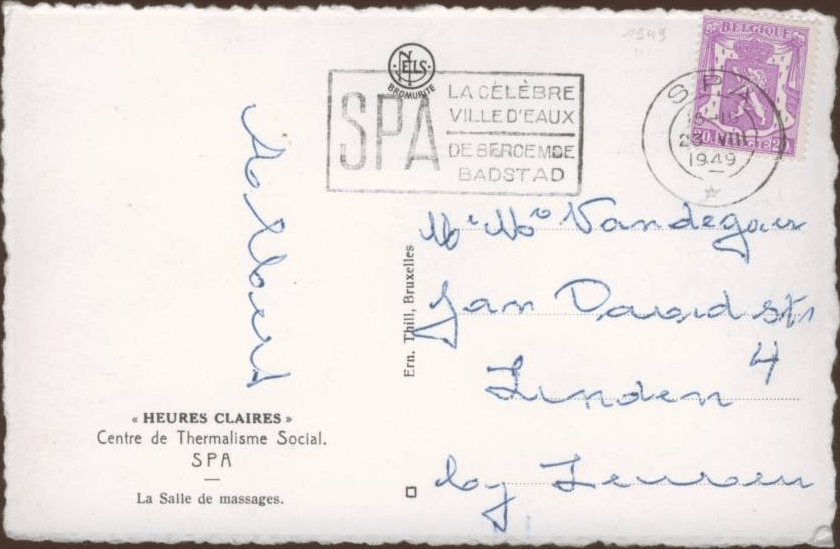 1949
NELS
BROMURITE
SPA
LA CÉLÈBRE
VILLE D'EAUX
DE BEROEMDE
BADSTAD
BELGIQUE
20 BELGIE 20
SPA
VIII
1949
Albert
Mr Mo Vandegaer
Jan Davidstr
4
Linden
by Leuven
Ern. Thill, Bruxelles
« HEURES CLAIRES »
Centre de Thermalisme Social.
SPA
La Salle de massages.